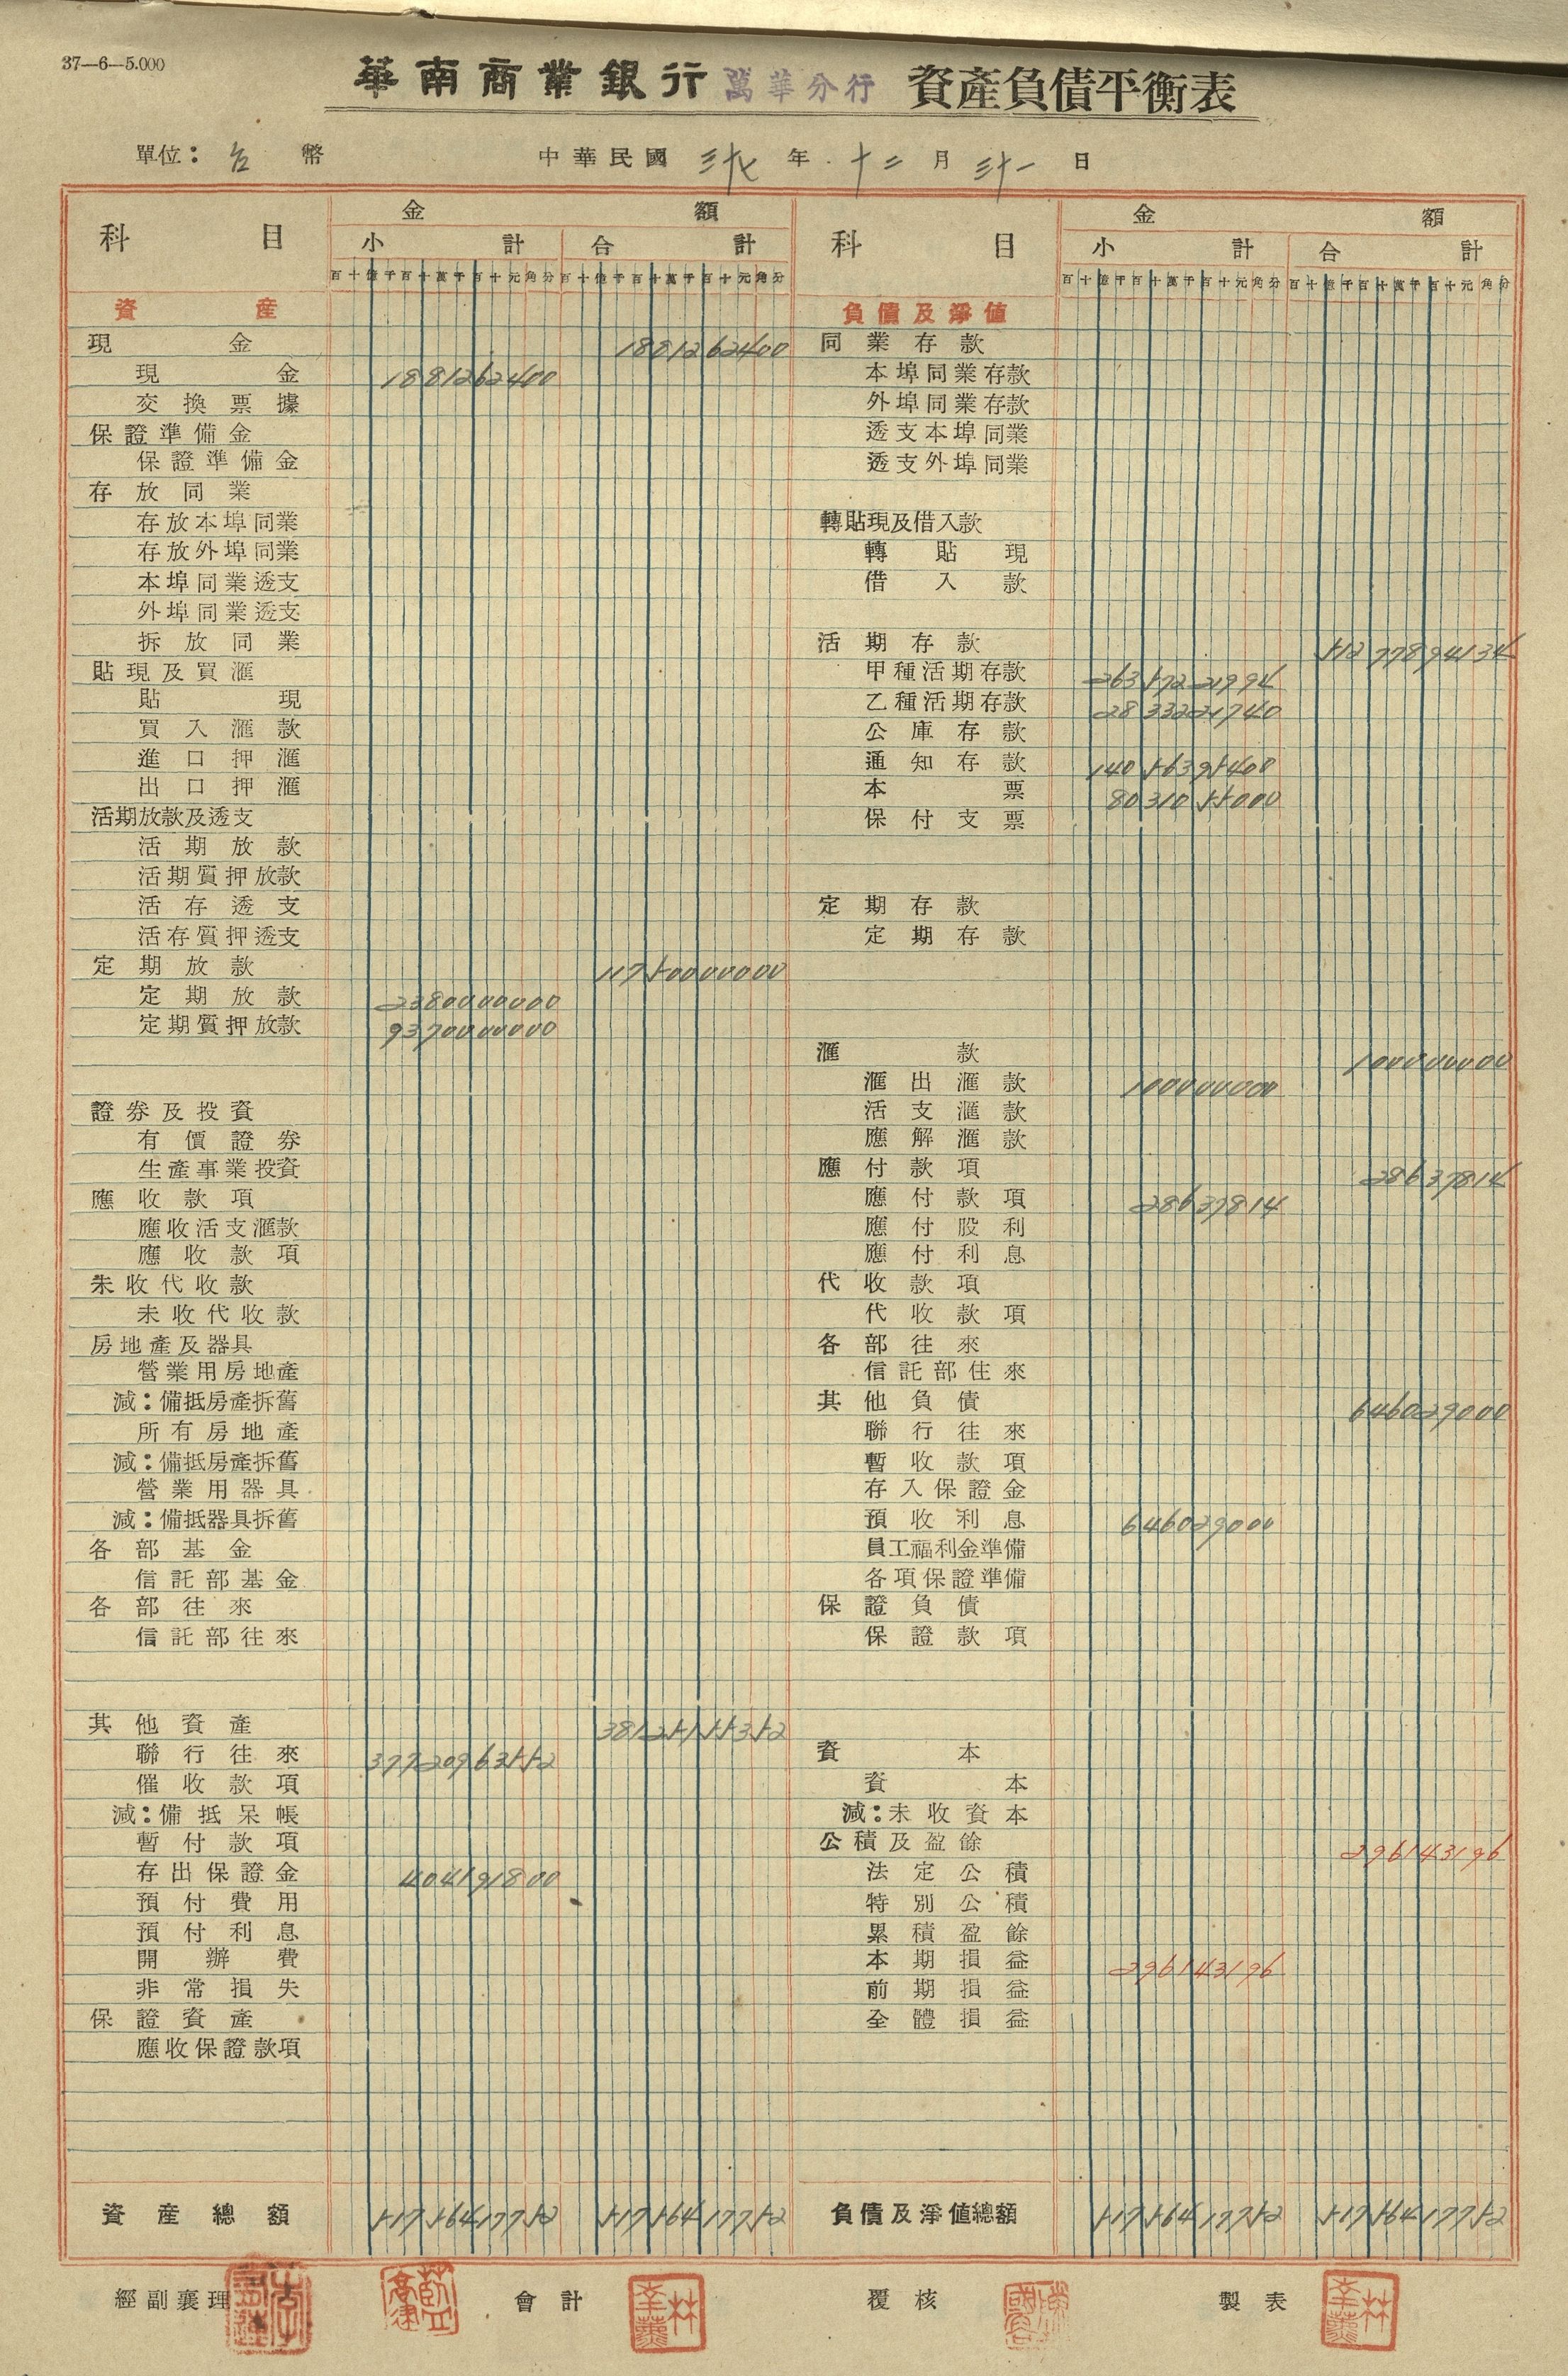 37—6—5.000
華南商業銀行 萬華分行 資產負債平衡表
單位：台幣 中華民國 三十七 年 十二 月 三十一 日
科目 金額
小計 合計
百十億千百十萬千百十元角分 百十億千百十萬千百十元角分
資產
現金 1881262400
現金 1881262400
交換票據
保證準備金
保證準備金
存放同業
存放本埠同業
存放外埠同業
本埠同業透支
外埠同業透支
拆放同業
貼現及買滙
貼現
買入滙款
進口押滙
出口押滙
活期放款及透支
活期放款
活期質押放款
活存透支
活存質押透支
定期放款 11750000000
定期放款 2380000000
定期質押放款 9370000000
證券及投資
有價證券
生產事業投資
應收款項
應收活支滙款
應收款項
未收代收款
未收代收款
房地產及器具
營業用房地產
減：備抵房產拆舊
所有房地產
減：備抵房產拆舊
營業用器具
減：備抵器具拆舊
各部基金
信託部基金
各部往來
信託部往來
其他資產 38125155352
聯行往來 37720963552
催收款項
減：備抵呆帳
暫付款項
存出保證金 404191800
預付費用
預付利息
開辦費
非常損失
保證資產
應收保證款項
資產總額 51756417752 51756417752
科目 金額
小計 合計
百十億千百十萬千百十元角分 百十億千百十萬千百十元角分
負債及淨值
同業存款
本埠同業存款
外埠同業存款
透支本埠同業
透支外埠同業
轉貼現及借入款
轉貼現
借入款
活期存款 51277894134
甲種活期存款 26357221994
乙種活期存款 2833221740
公庫存款
通知存款 14056395400
本票 8031055000
保付支票
定期存款
定期存款
滙款 100000000
滙出滙款 100000000
活支滙款
應解滙款
應付款項 28637814
應付款項 28637814
應付股利
應付利息
代收款項
代收款項
各部往來
信託部往來
其他負債 646029000
聯行往來
暫收款項
存入保證金
預收利息 646029000
員工福利金準備
各項保證準備
保證負債
保證款項
資本
資本
減：未收資本
公積及盈餘 296143196
法定公積
特別公積
累積盈餘
本期損益 296143196
前期損益
全體損益
負債及淨值總額 51756417752 51756417752
經副襄理 會計 覆核 製表